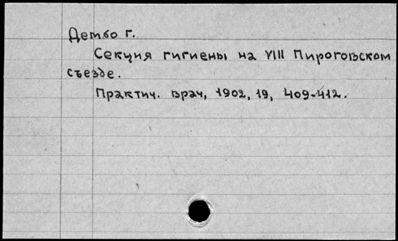 Дембо Г.
Секция гигиены на VIII Пироговском
съезде.
Практич. врач, 1902, 19, 409-412.